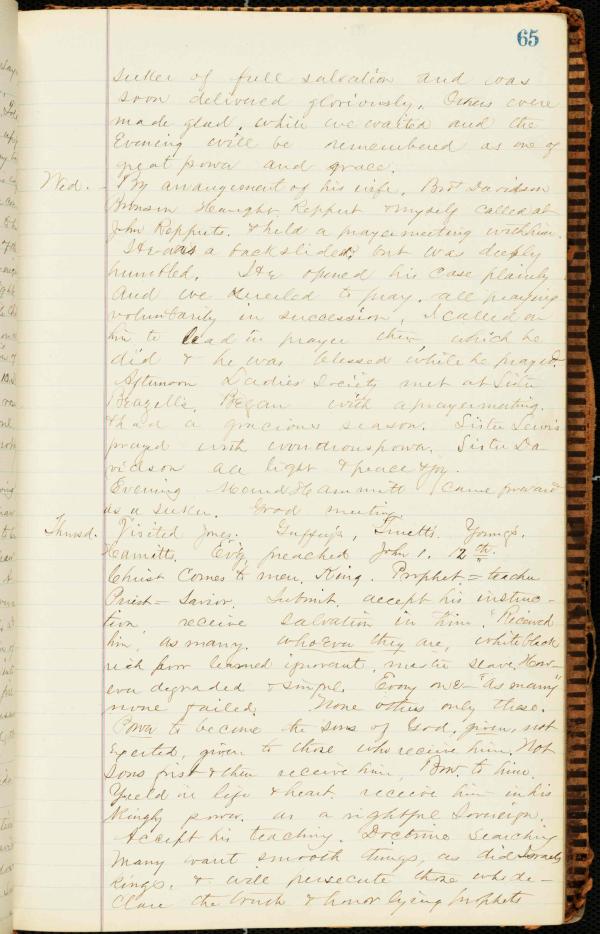 65
seeker of full salvation and was
soon delivered gloriously. Others were
made glad, while we waited and the
Evening will be remembered as one of
great power and grace.
Wed. - By arrangement of his wife, Bro Davidson
Bronson Haught, Reppert & myself called at
John Repperts. & held a prayermeeting with him.
He was a backslider, but was deeply
humbled. He opened his case plainly
And we kneeled to pray. all praying
voluntarily in succession, I called on
him to lead in prayer then, which he
did & he was blessed while he prayed.
Afternoon Ladies Society met at Sister
Beazells. Began with a prayermeeting.
& had a gracious season. Sister Lewis
prayed with wondrous power. Sister Da-
vidson all light & peace & joy.
Evening Hammitt came forward
as a seeker. Good meeting.
Thursd. Visited Jones. Guffeys, Youngs.
Hamitts. Ev'g, preached John 1. 12th.
Christ comes to men, King. Prophet = teacher
Priest = Savior. Submit. accept his instruc-
tion receive salvation in him. "Received
him, as many. whoever they are, white black
rich poor learned ignorant, master slave, How-
ever degraded & sinful. Every one - "As many"
none failed. None others only these.
Power to become the sons of God, given, not
exerted, given to those who receive him. Not
sons first & then receive him, Bow to him.
Yield in life & heart. receive him in his
Kingly power. as a rightful Sovereign.
Accept his teaching. Doctrine Searching
Many want smooth things, as did Israels
Kings, & will persecute those who de-
clare the truth & honor lying prophets